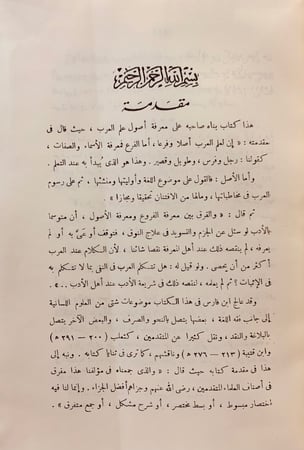 بسم الله الرحمن الرحيم
مقدمة
هذا كتاب بناه صاحبه على معرفة أصول علم العرب ، حيث قال فى
مقدمته : « إن لعلم العرب أصلا وفرعا ، أما الفرع فمعرفة الأسماء والصفات ،
كقولنا : رجل وفرس ، وطويل وقصير . وهذا هو الذى يُبدأ به عند التعلم .
وأما الأصل : فالقول على موضوع اللغة وأوليتها ومنشئها ، ثم على رسوم
العرب فى مخاطباتها ، ومالها من الافتنان تحقيقا ومجازا » .
ثم قال : « والفرق بين معرفة الفروع ومعرفة الأصول ، أن متوسما
بالأدب لو سئل عن الجزم والتسويد فى علاج النوق ، فتوقف أو عَىَّ به أو لم
يعرفه ، لم ينقصه ذلك عند أهل المعرفة نقصا شائنا ، لأن الكلام عند العرب
أكثر من أن يحصى . ولو قيل له : هل تتكلم العرب فى النفى بما لا تتكلم به
فى الإثبات ؟ ثم لم يعلمه ، لنقصه ذلك فى شريعة الأدب عند أهل الأدب .. » .
وقد عالج ابن فارس فى هذا الكتاب موضوعات شتى من العلوم اللسانية
إلى جانب فقه اللغة ، بعضها يتصل بالنحو والصرف ، والبعض الآخر يتصل
بالبلاغة والنقد ، ونقل كثيرا عن المتقدمين ، كثعلب ( ٢٠٠ – ٢٩١ ه )
وابن قتيبة ( ٢١٣ – ٢٧٦ ه ) وناقشهم ، كما ترى فى ثنايا كتابه . ونبه إلى
هذا فى مقدمة كتابه حيث قال : « والذى جمعناه فى مؤلفنا هذا مفرق
فى أصناف العلماء المتقدمين ، رضى الله عنهم وجزاهم أفضل الجزاء . وإنما لنا فيه
اختصار مبسوط ، أو بسط مختصر ، أو شرح مشكل ، أو جمع متفرق » .